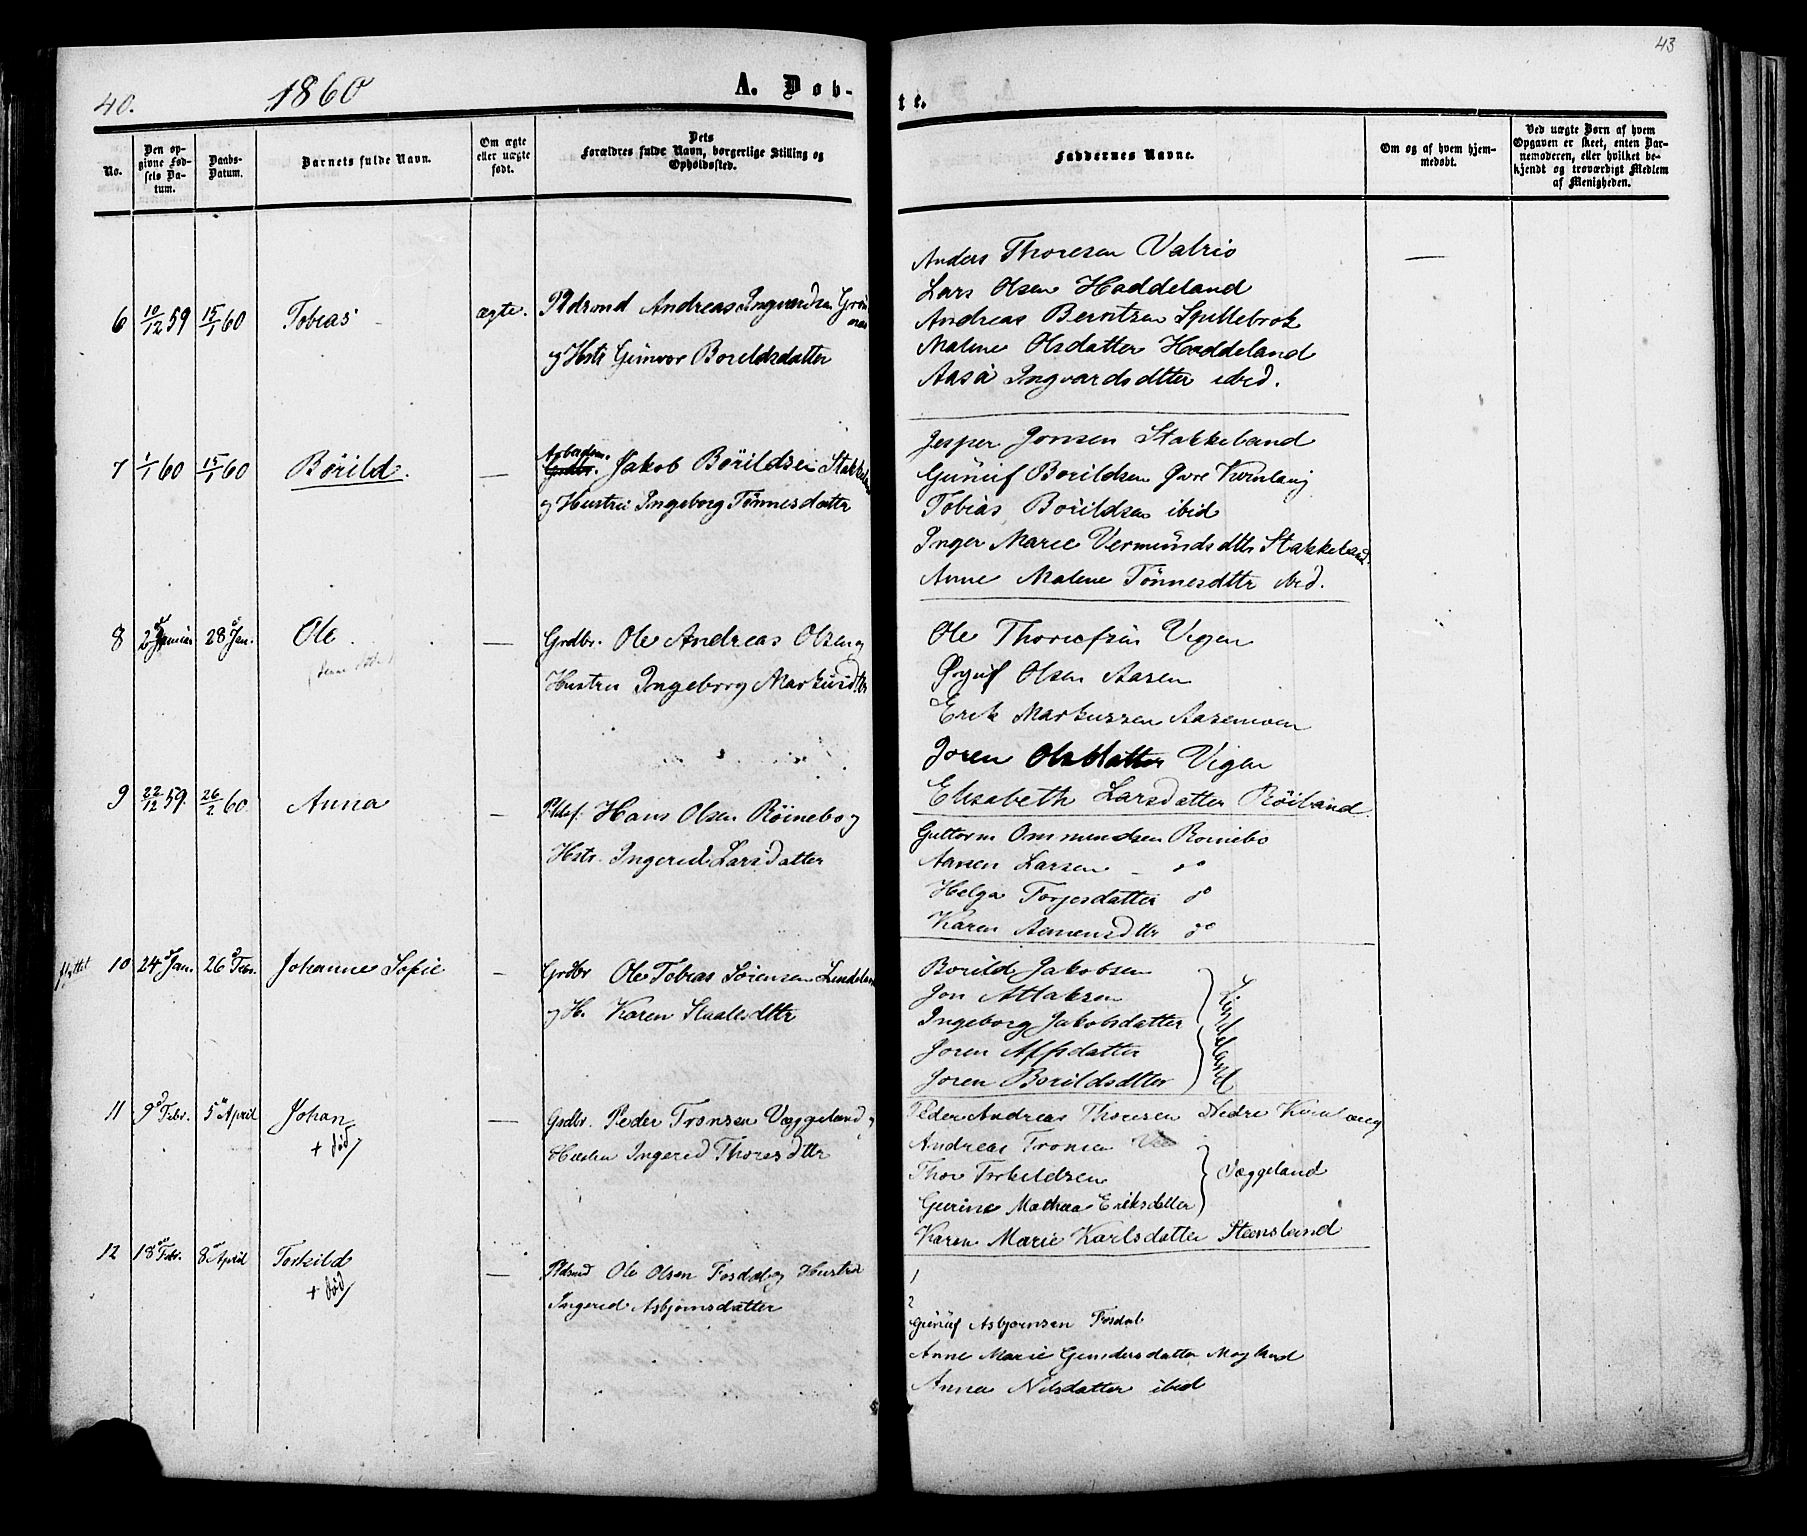 43
40.
1860
A. Døb-
te.
No.
Den op-
givne Fød-
sels Da-
tum.
Daabs-
Datum.
Barnets fulde Navn.
Om ægte
eller uægte
født.
Dets
Forældres fulde Navn, borgerlige Stilling og
Opholdssted.
Faddernes Navne.
Om og af hvem hjem-
medøbt.
Ved uægte Børn af hvem
Opgaven er skeet, enten Bar-
nemoderen, eller hvilket be-
kjendt og troværdigt Medlem
af Menigheden.
6 10/12 59 15/1 60 Tobias ægte. Pldsmd Andreas Ingvardsen
og Hstr Gunvor Borildsdatter
Anders Thoresen Valrio —
Lars Olsen Haddeland
Andreas Berntsen Spillebrok
Malene Olsdatter Haddeland
Aasa Ingvardsdtter ibid.
7 1/1 60 15/1 60 Börild. — Arbeidsm.
Grdbr. Jakob Börildsen Stakkeland
og Hustru Ingeborg Tönnesdatter
Jesper Jonsen Stakkeland
Gunuf Borildsen Øvre Kvinlaug
Tobias Börildsen ibid
Inger Marie Vermundsdtr Stakkeland
Anne Malene Tönnesdttr ibid.
8 2d Januar 28d Jan. Ole — Grdbr. Ole Andreas Olsen og
Hustru Ingeborg Markusdtr
Ole Thorufsen Vigen
Olsen Aasen
Erik Markussen Aasemoen
Joren Olsdatter Vigen
Elisabeth Larsdatter Röiland
9 22/12 59. 26/2 60 Anna — Hans Olsen Röinebo og
Hstr. Ingered Larsdatter
Guttorm Ommundsen Roinebo
Aanen Larsen - do
Helga Torjesdatter do
Karen Aanensdttr do
flyttet 10 24d Jan. 26d Febr. Johanne Sofie — Grdbr Ole Tobias Sörensen Lindeland
og H. Karen Staalesdttr
Borild Jakobsen
Jon Atlaksen
Ingeborg Jakobsdatter
Joren Affsdatter
Joren Borildsdtter
Lindeland
11 9d Febr. 5d April Johan — Grdbr. Peder Tronsen Væggeland og
+ död
Hustru Ingered Thoresdttr
Peder Andreas Thoresen Nedre Kvinlaug
Andreas Tronsen
Thor Torkildsen
Væggeland
Gurine Mathea Eriksdatter
Karen Marie Karlsdatter Steensland
12 18de Febr. 8d April Torkild — Pldsmd Ole Olsen Fosdal og Hustru
+ död
Ingered Asbjørnsdatter
1
2
Gunuf Asbjørnsen Fosdal
Anne Marie Gundersdatter Mogland
Anna Nilsdatter ibid